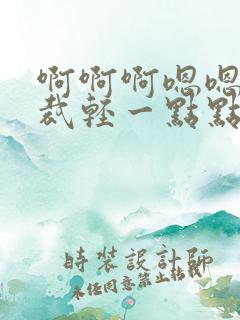 啊啊啊嗯嗯
裁輕一點點
時裝設計師
未任同意禁止轉載